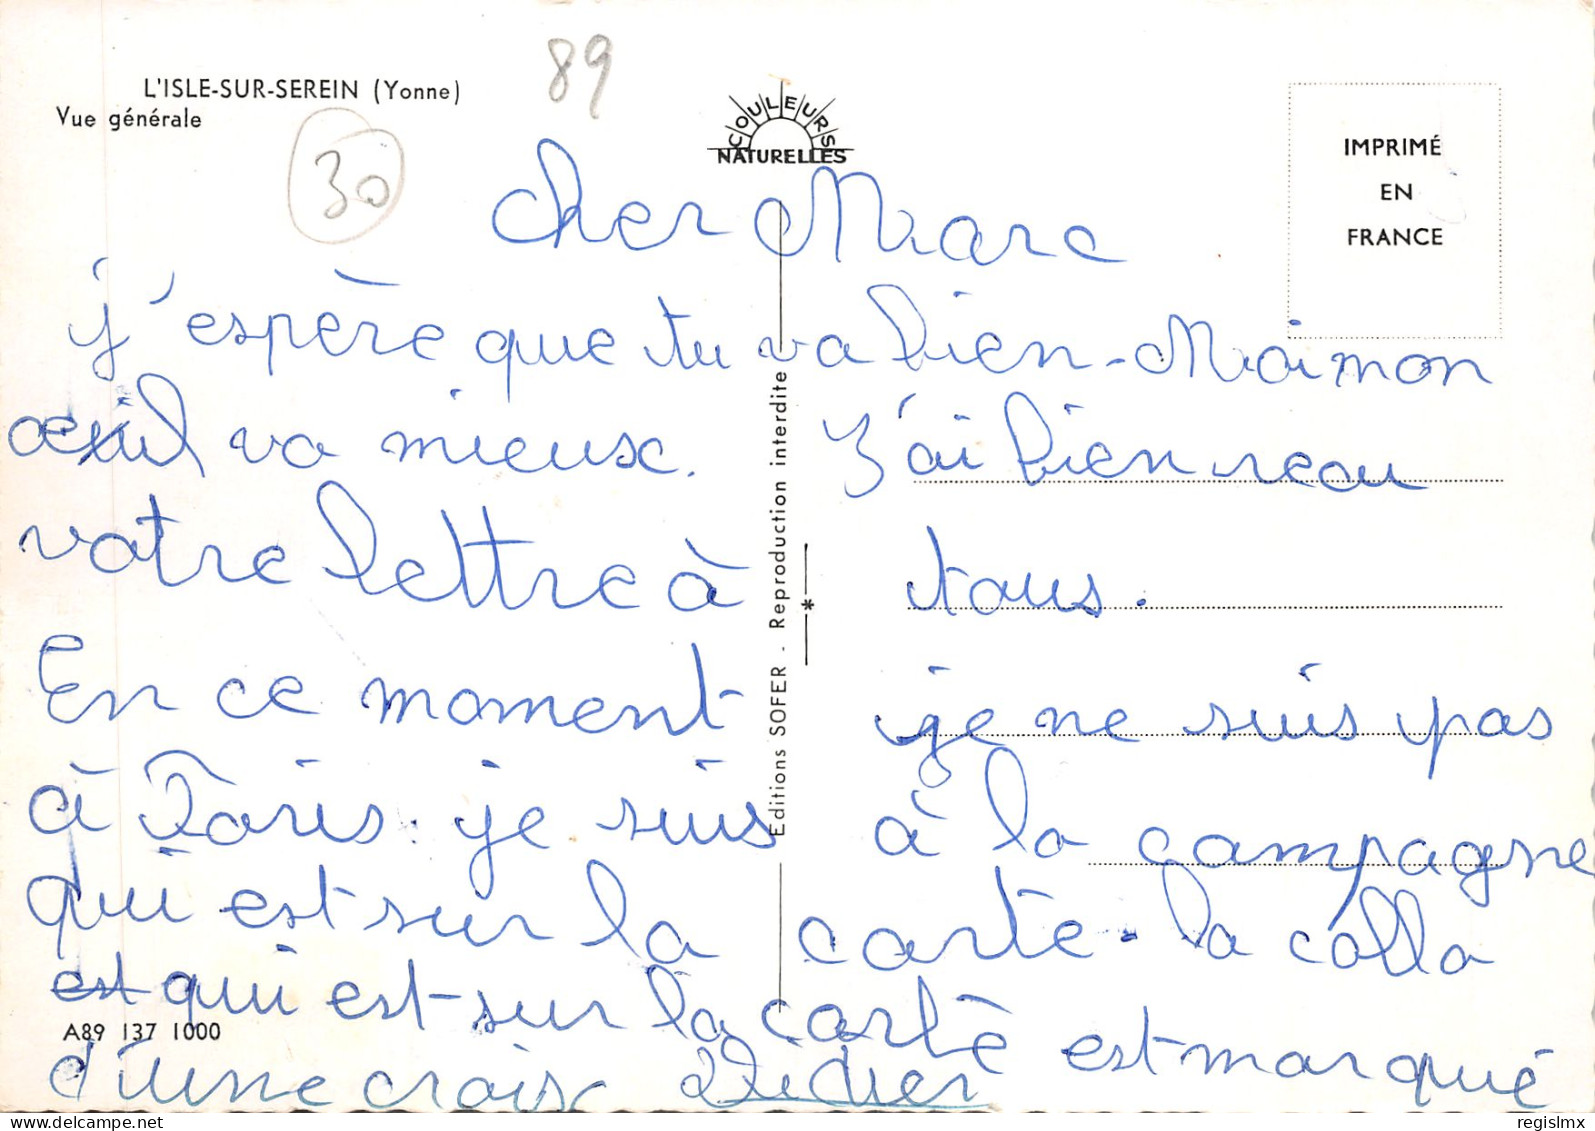 L'ISLE-SUR-SEREIN (Yonne)
Vue générale
89
30
COULEURS
NATURELLES
IMPRIMÉ
EN
FRANCE
Cher Marc
j'espère que tu va bien - Moi mon
œil va mieux. J'ai bien reau
votre lettre à tous.
En ce moment je ne suis pas
à Paris. je suis à la campagne
qui est sur la carte. la colla
est qui est sur la carte est marqué
d'une croix Didier
Editions SOFER - Reproduction interdite
*
A89 137 1000
regislmx